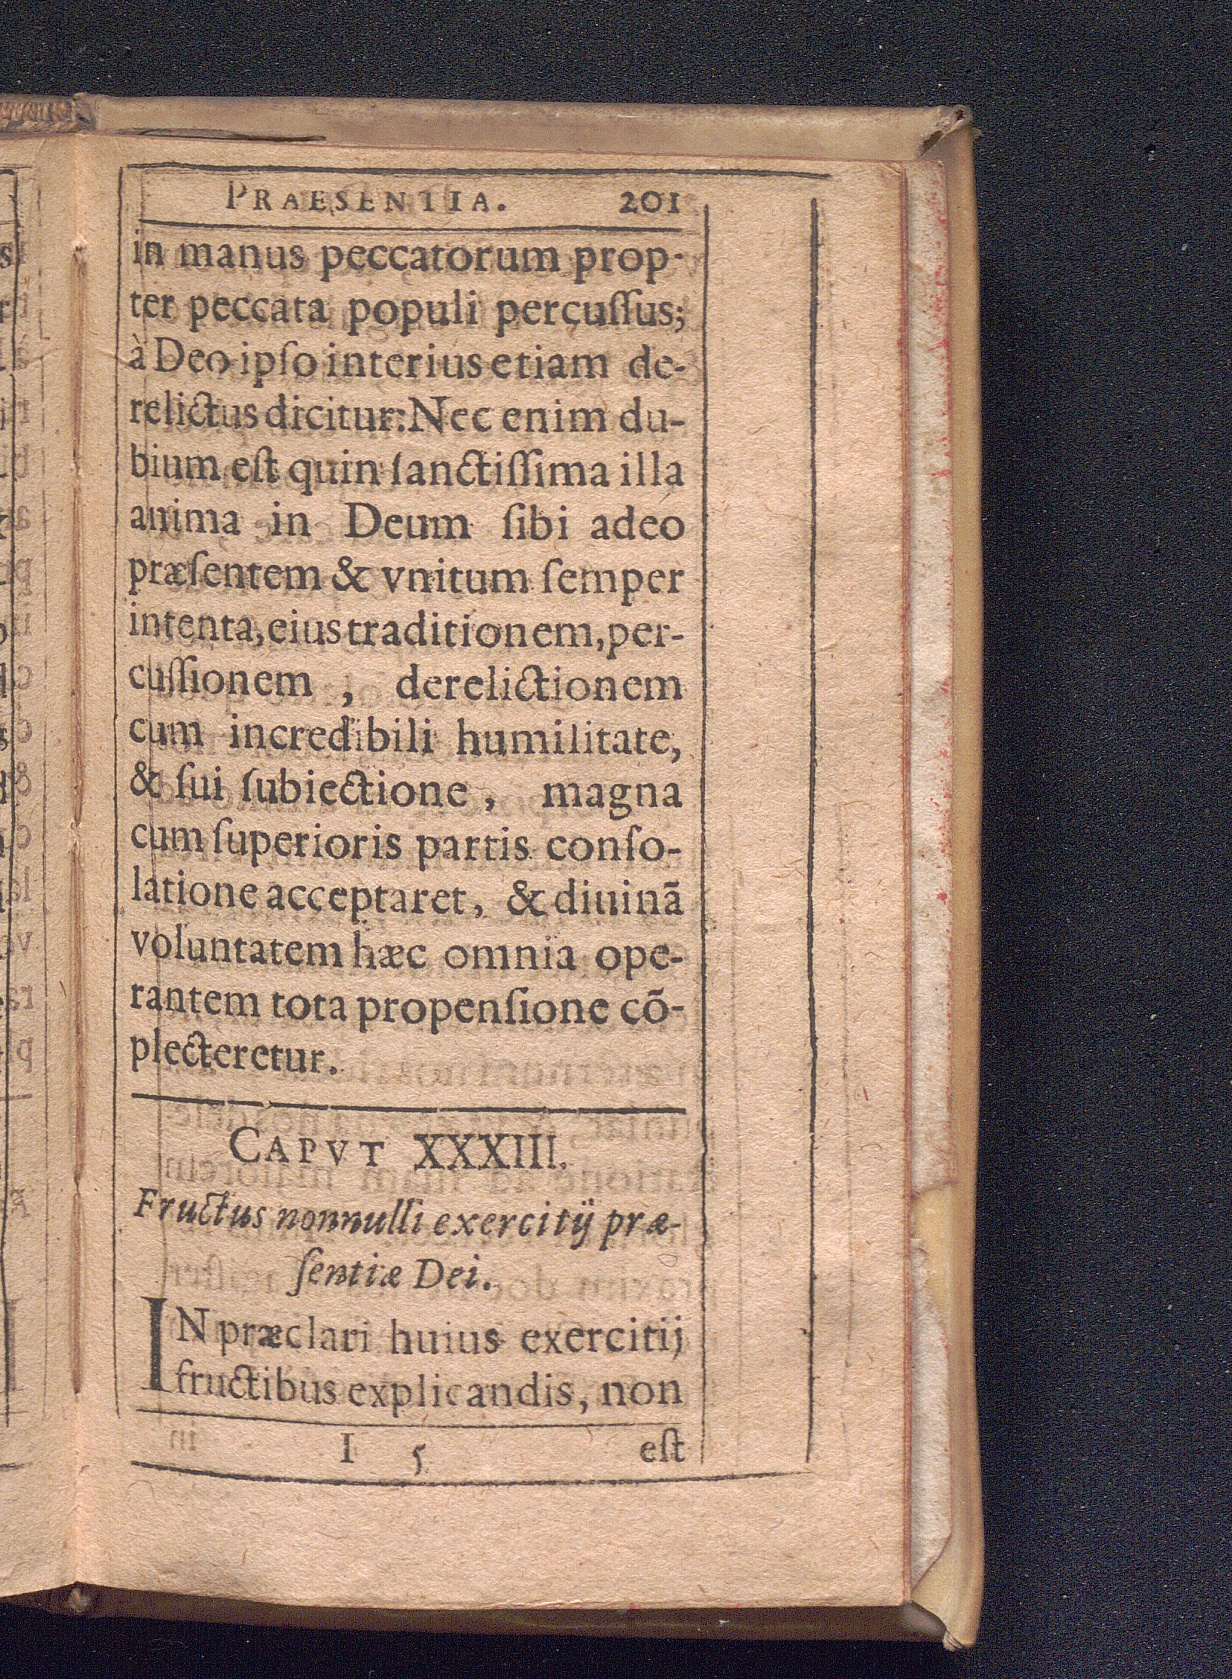 PRAESENTIA. 201
in manus peccatorum prop-
ter peccata populi percuſſus;
à Deo ipſo interius etiam de-
relictus dicitur: Nec enim du-
bium eſt quin ſanctiſſima illa
anima in Deum ſibi adeo
præſentem & vnitum ſemper
intenta, eius traditionem, per-
cuſſionem , derelictionem
cum incredibili humilitate,
& ſui ſubiectione , magna
cum ſuperioris partis conſo-
latione acceptaret, & diuinã
voluntatem hæc omnia ope-
rantem tota propenſione cõ-
plecteretur.
CAPVT XXXIII.
Fructus nonnulli exercitij præ-
ſentiæ Dei.
IN præclari huius exercitij
fructibus explicandis, non
I 5 eſt